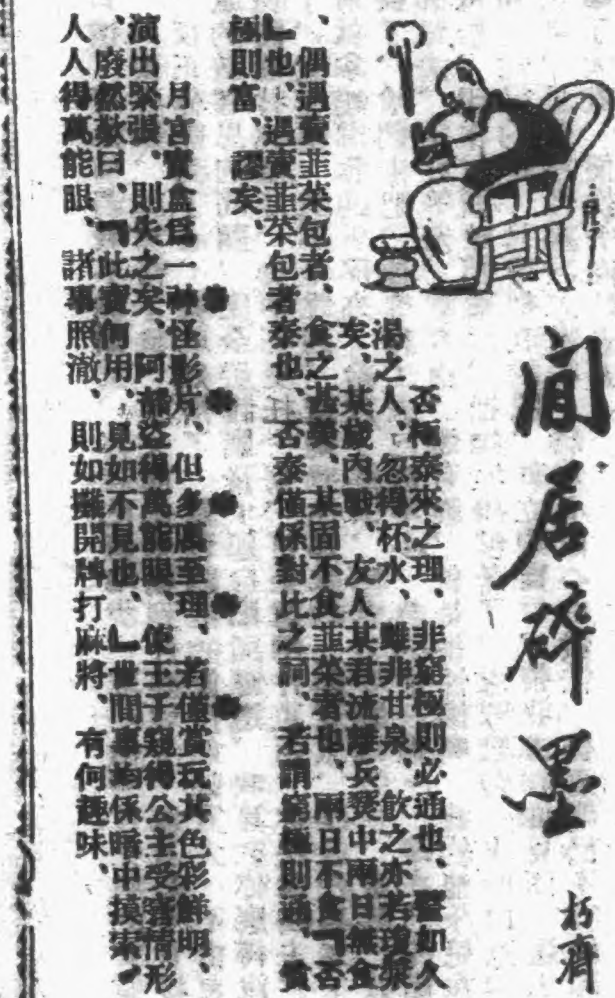 閒居碎墨
朽齋
否極泰來之理、非窮極則必通也、譬如久
渴之人、忽得杯水、雖非甘泉、飲之亦若瓊漿
矣、某歲內戰、友人某君流離兵燹中兩日無食
、偶遇賣韮菜包者、食之甚美、某固不食韮菜者也、兩日不食「否
」也、遇賣韮菜包者泰也、否泰僅係對比之詞、若謂窮極則通、貧
極則富、謬矣、
月宮寶盒爲一神怪影片、但多寓至理、若僅賞玩其色彩鮮明、
演出緊張、則失之矣、阿、盜得萬能眼、使王子窺得公主受窘情形
、廢然歎曰、「此寶何用、見如不見也、」世間事均係暗中摸索、
人人得萬能眼、諸事照澈、則如攤開牌打麻將、有何趣味、